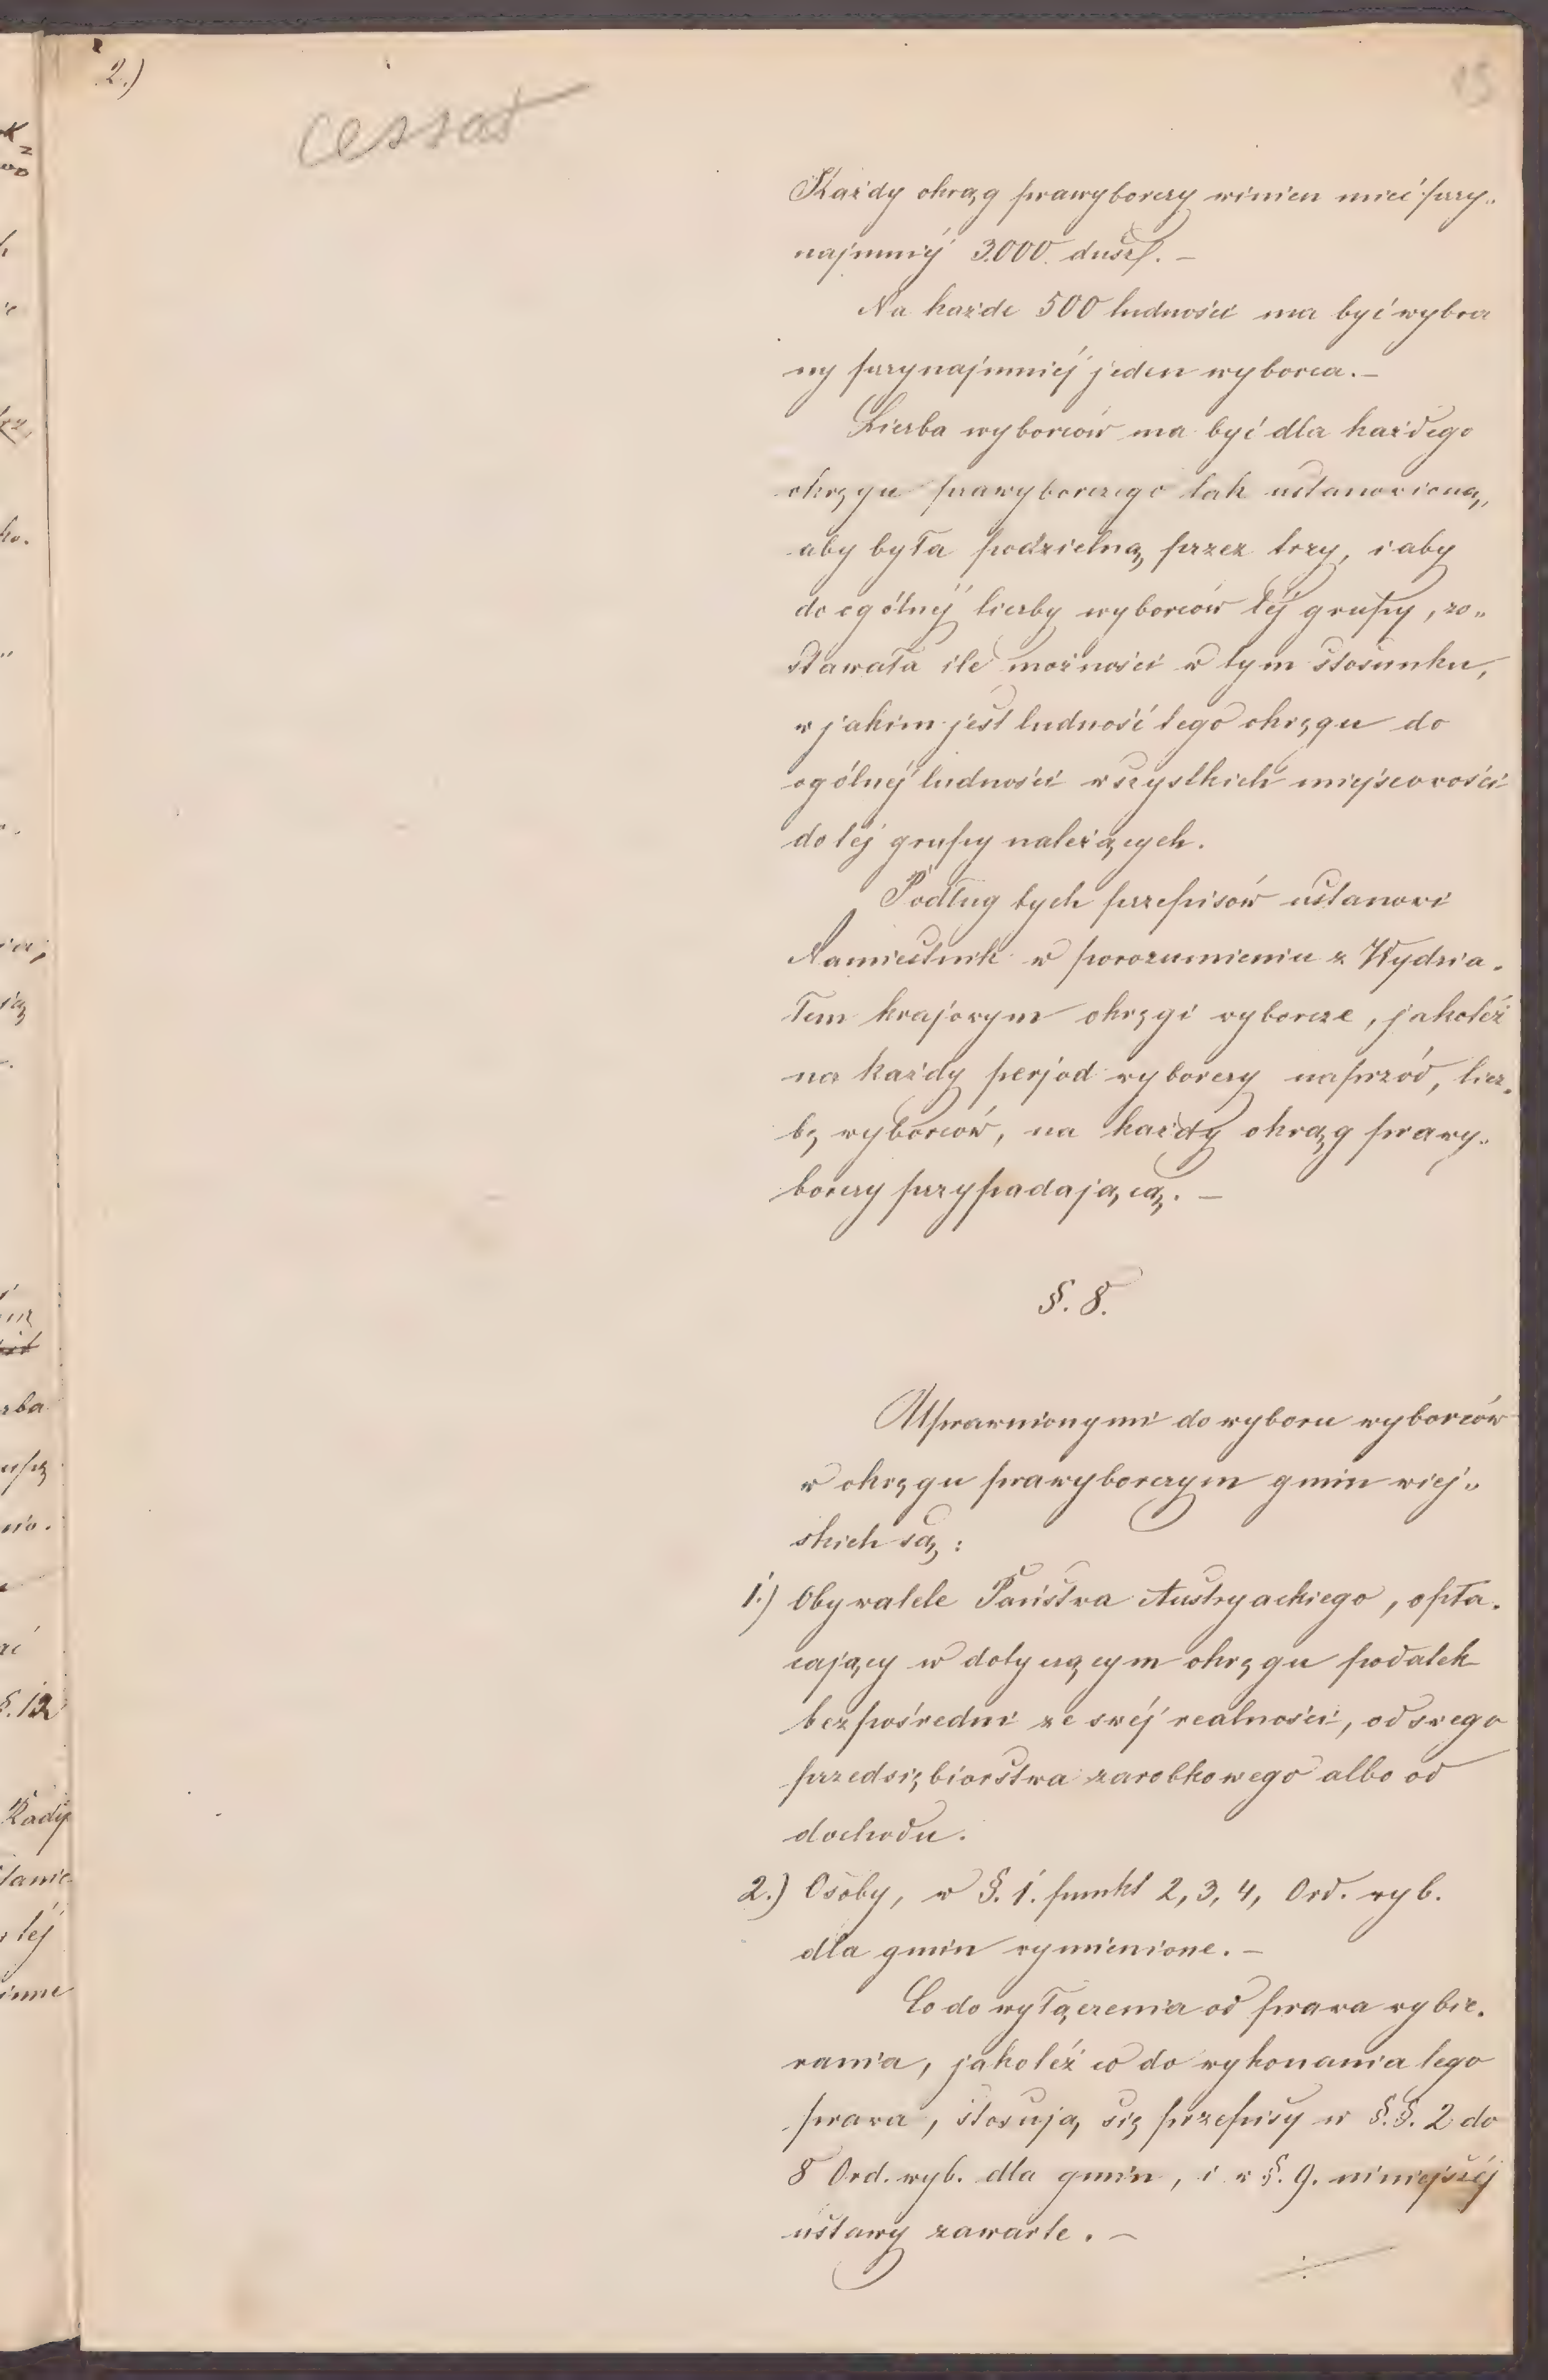 2.)
cessat
15
Każdy okrąg prawyborczy winien mieć przy„
najmniéj 3.000 dusz. –
Na każde 500 ludności ma być wybra
ny przynajmniéj jeden wyborca. –
Liczba wyborców ma być dla każdego
okręgu prawyborczego tak ustanowioną,
aby była podzielną przez trzy, i aby
do ogólnéj liczby wyborców téj grupy, zo„
stawała ile możności w tym stosunku,
w jakim jest ludność tego okręgu do
ogólnéj ludności wszystkich miejscowości
do téj grupy należących.
Podług tych przepisów ustanowi
Namiestnik w porozumieniu z Wydzia„
łem krajowym okręgi wyborcze, jakotéż
na każdy perjod wyborczy naprzód, licz„
bę wyborców, na każdy okrąg prawy„
borczy przypadającą. –
§. 8.
Uprawnionymi do wyboru wyborców
w okręgu prawyborczym gmin wiej„
skich są:
1.) Obywatele Państwa Austryackiego, opła„
cający w dotyczącym okręgu podatek
bezpośredni ze swéj realności, od swego
przedsiębiorstwa zarobkowego albo od
dochodu.
2.) Osoby, w §. 1. punkt 2, 3, 4, Ord. wyb.
dla gmin wymienione. –
Co do wyłączenia od prawa wybie„
rania, jakotéż co do wykonania tego
prawa, stosują się przepisy w §.§. 2 do
8 Ord. wyb. dla gmin, i w §. 9. niniejszéj
ustawy zawarte. –